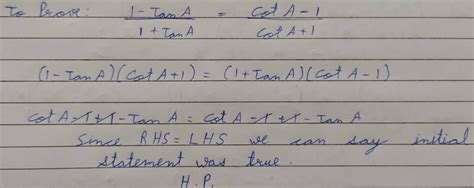 To Prove: (1 - Tan A)/(1 + Tan A) = (Cot A - 1)/(Cot A + 1)
(1 - Tan A)(Cot A + 1) = (1 + Tan A)(Cot A - 1)
Cot A - 1 + 1 - Tan A = Cot A - 1 + 1 - Tan A
Since RHS = LHS we can say initial
statement was true.
H.P.